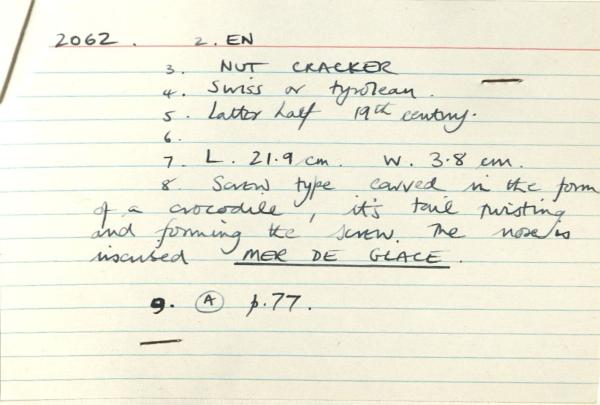 2062. 2. EN
3. NUT CRACKER
4. Swiss or tyrolean.
5. Latter half 19th century.
6.
7. L. 21.9 cm. W. 3.8 cm.
8. Screw type carved in the form
of a crocodile, it's tail twisting
and forming the screw. The nose is
inscribed MER DE GLACE.
9. (A) p.77.